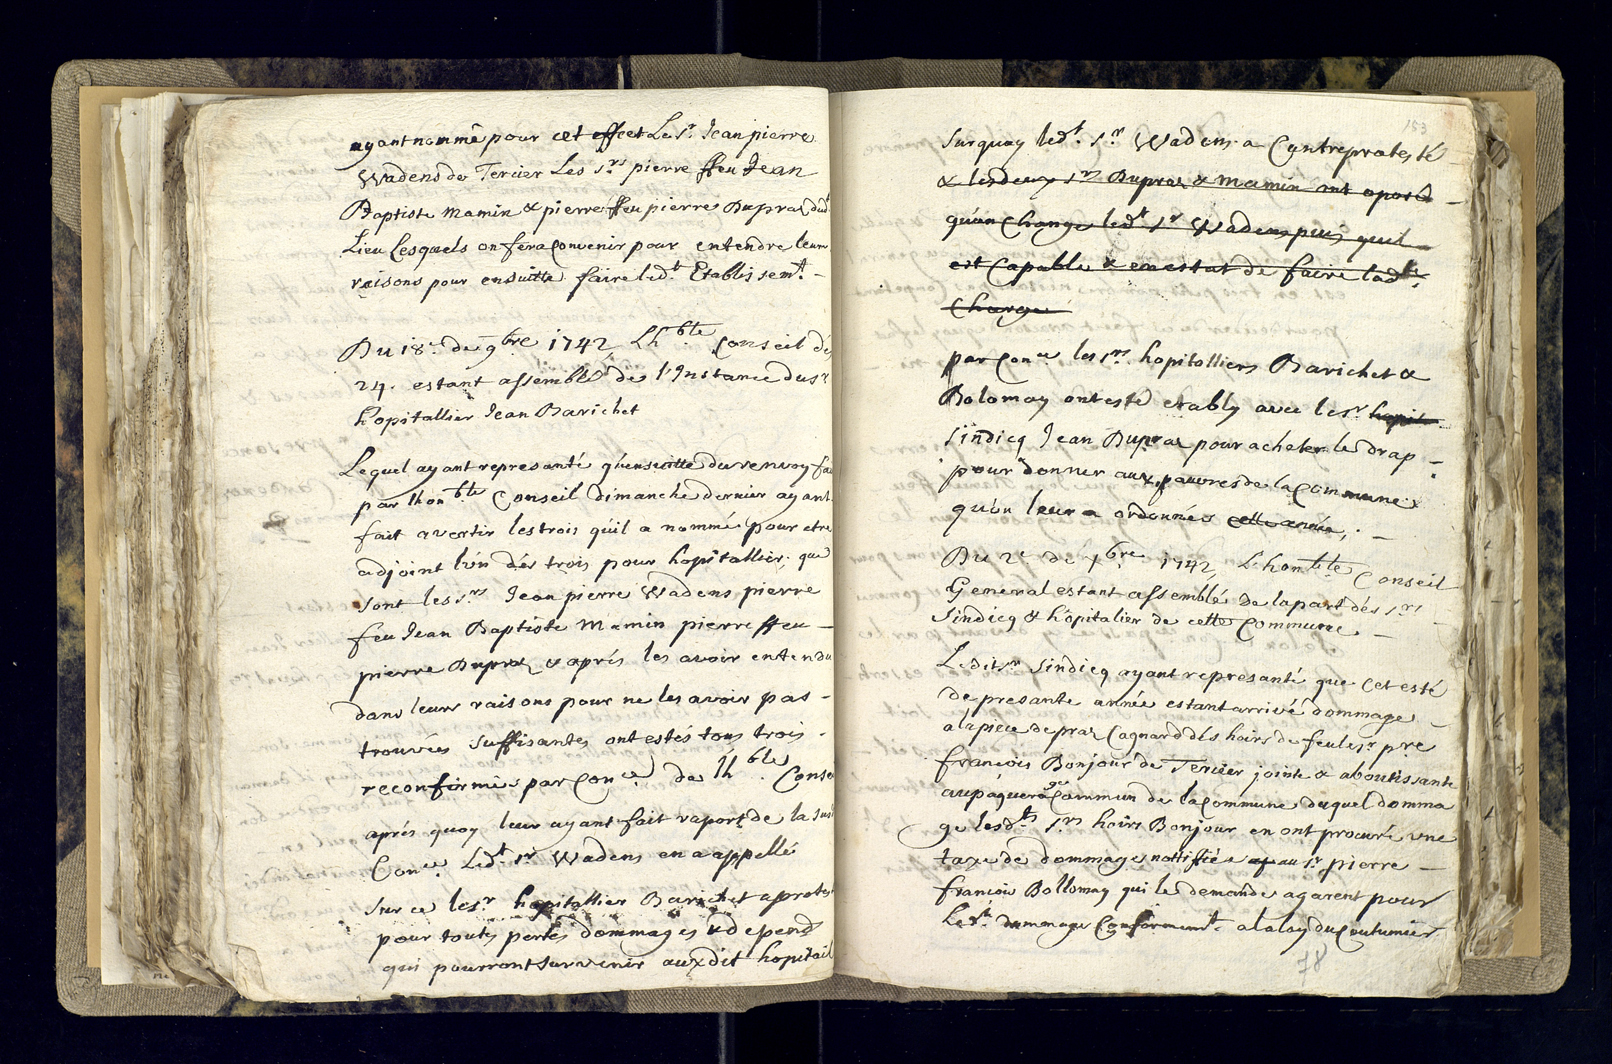 ayant nommé pour cet effect Le Sr Jean pierre
Wadens de Tercier Les Srs pierre ffeu Jean
Baptiste Mamin & pierre ffeu pierre Dupraz dud
Lieu Lesquels on fera Convenir pour entendre leurs
raisons pour ensuitte faire ledt Etablissemt. -
Du 18e de 9bre 1742 Lhble Conseil des
24. estant assemblé de l'Instance du Sr
hopitallier Jean Barichet
Lequel ayant representé qu'ensuitte du renvoy fa
par lhonble Conseil dimanche dernier ayant
fait avertir les trois qu'il a nommé pour etre
adjoint l'ún dés trois pour hopitallier, que
sont les Srs Jean pierre Wadens pierre
feu Jean Baptiste Mamin pierre ffeu -
pierre Dupraz & aprés les avoir entendu
dans leurs raisons pour ne les avoir pas -
trouvées suffisantes ont estés tous trois -
reconfirmés par Conce de lhble. Conse
aprés quoy leur ayant fait raport de la sus
Conce. Ledt Sr Wadens en a appellé
Sur ce le Sr hopitallier Barichet a protes
pour toutes pertes dommages & depend
qui pourront survenir auxdit hopitail
153
Surquoy ledt. Sr. Wadens a Contreprotesté
& lesdeux Srs Dupraz & Mamin ont oposé -
qu'on Change ledt Sr Wadens puis quil
est Capable & en estat de faire ladte
Charge
par Conce les Srs. hopitalliers Barichet &
Bolomay ont esté etably avec le Sr hopit
Sindicq Jean Dupraz pour acheter le drap -
pour donner aux pauvres de la Commune
qu'on leur a ordonnés cette année, . -
Du 2e de xbre 1742, L'honble Conseil
General estant assemblé de la part dés Srs
Sindicq & hôpitalier de cette Commune. -
Ledit Sr Sindicq ayant representé que cet esté
de presante année estant arrivé dommage -
a la piece de praz Cagnard dés hoirs de feu le Sr pre
françois Bonjour de Tercier jointe & aboutissante
au pâquerage Commun de la Commune duquel domma
ge lesdts Srs hoirs Bonjour en ont procuré une
taxe de dommage nottiffiée ap au Sr pierre -
françois Bollomay qui le demande agarent pour
Ledt. dommage Conformemt. a la loy du Coutumier
78